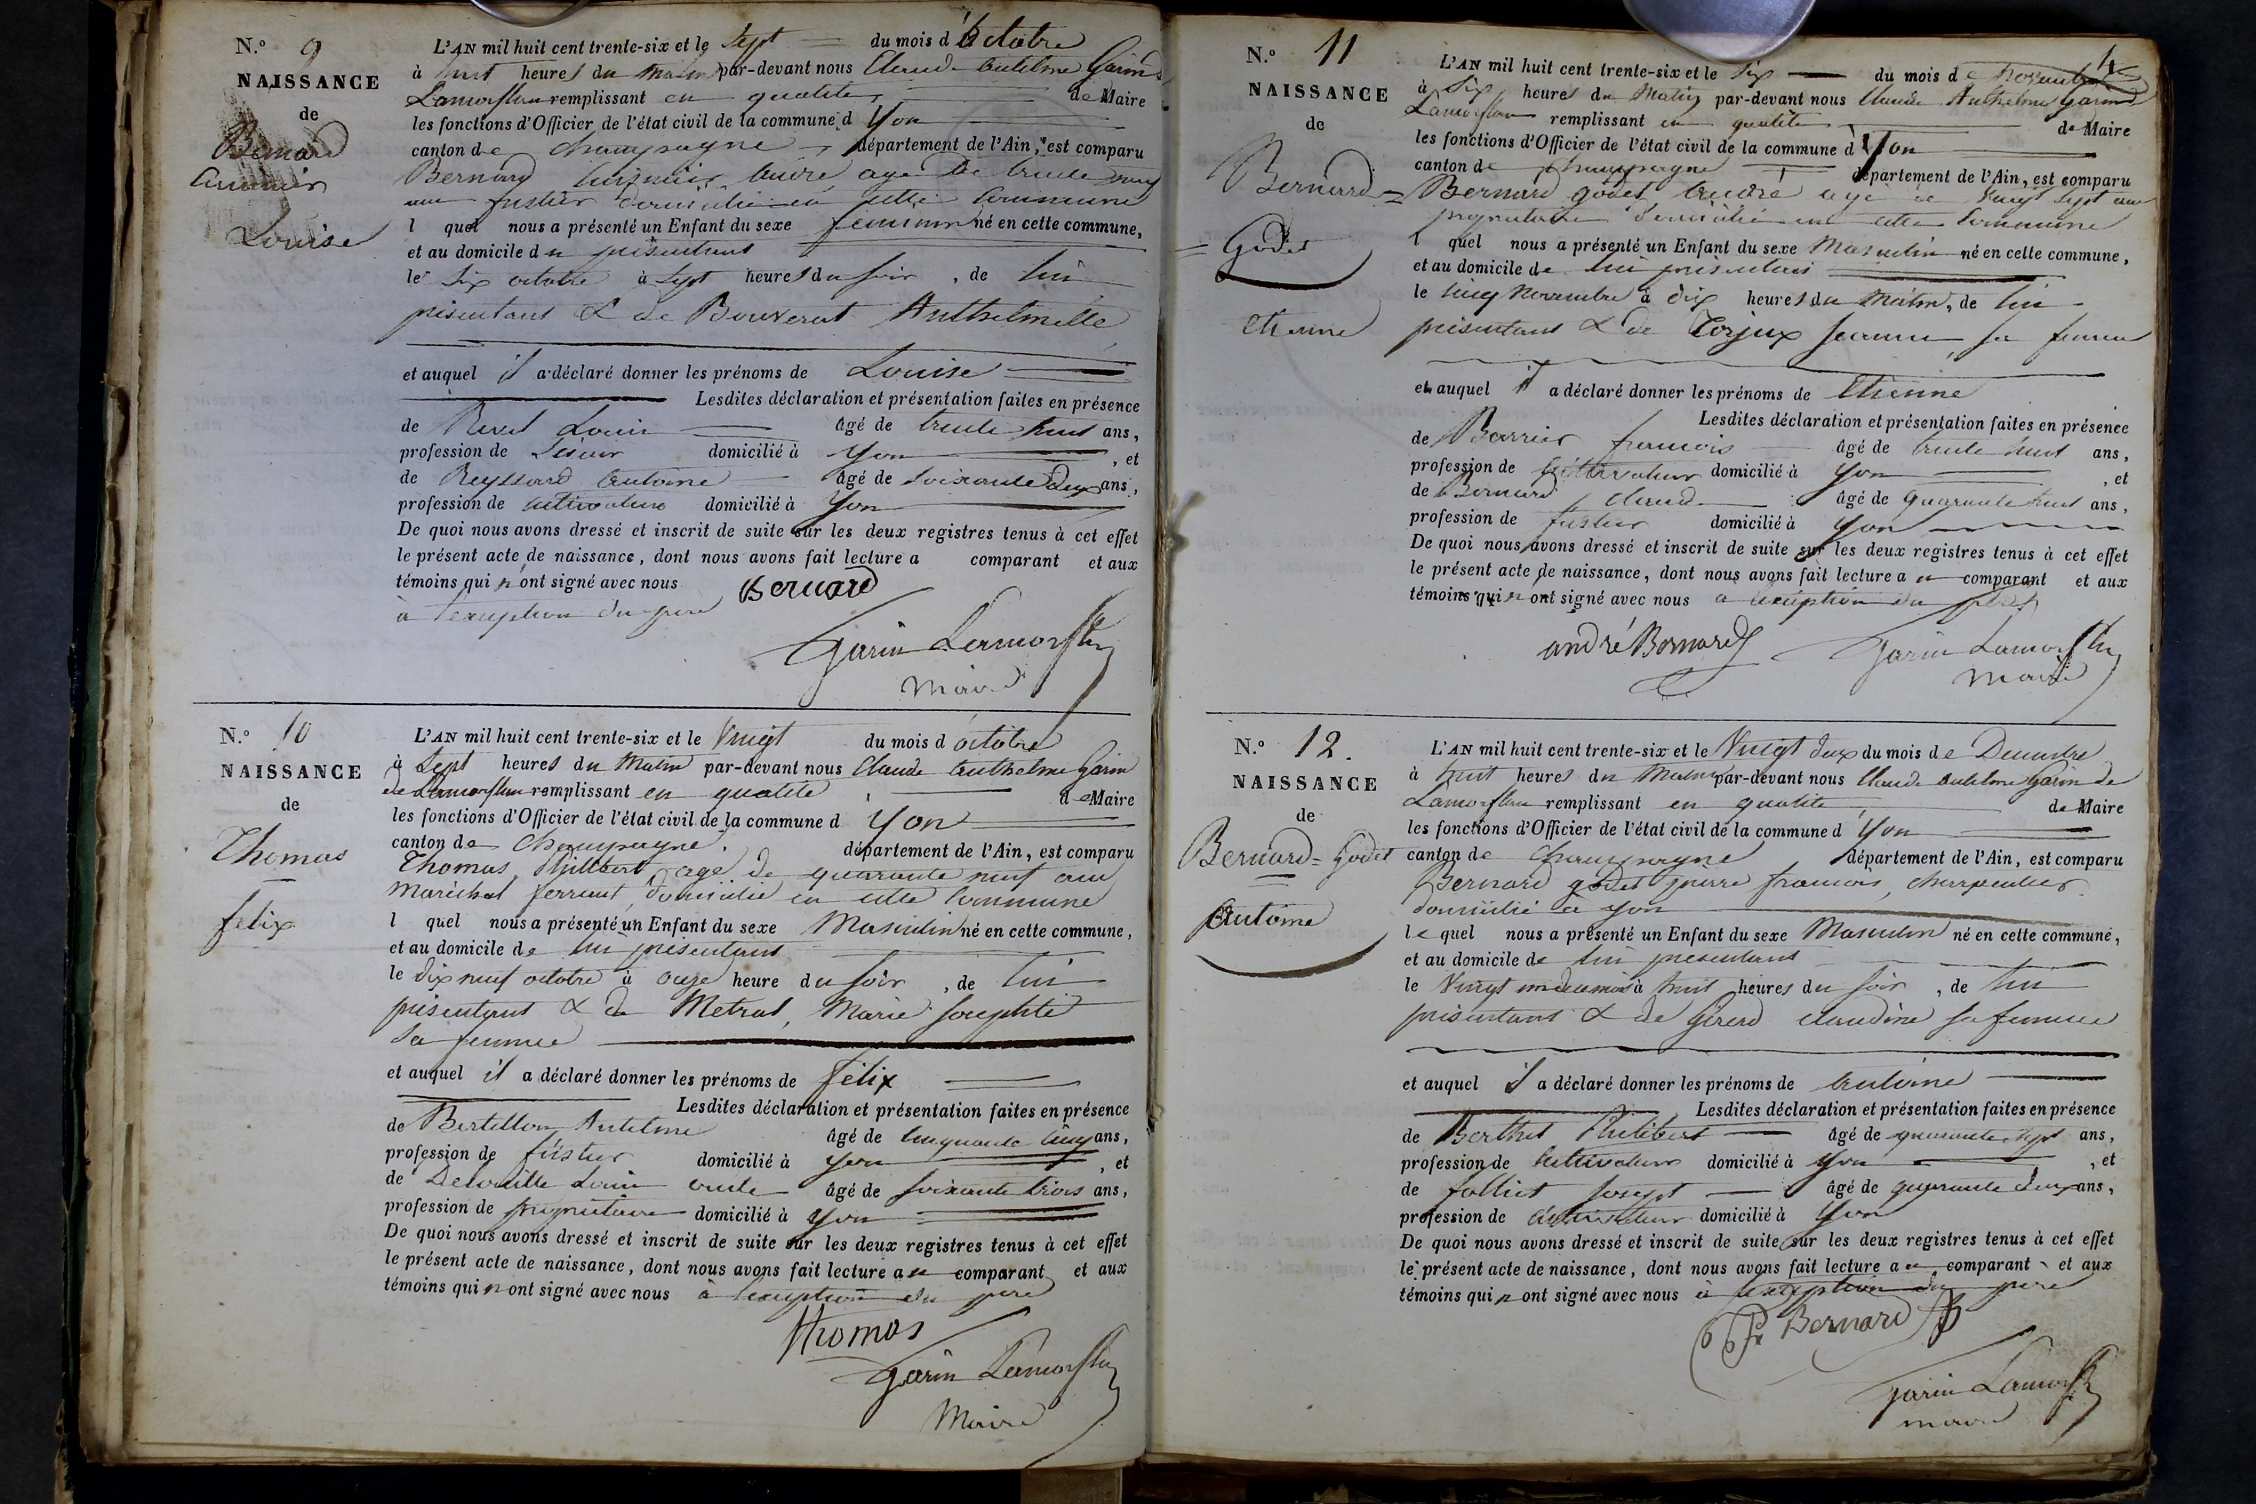 N.º 9
NAISSANCE
de
Bernard
Louise
L'AN mil huit cent trente-six et le sept du mois d'octobre
à huit heures du matin par-devant nous Claude Antelme Garin
Lamorflan remplissant en qualité de Maire
les fonctions d'Officier de l'état civil de la commune d Yon
canton de Champagne département de l'Ain, est comparu
Bernard André agé de trente
fustier domicilié en cette commune
l quel nous a présenté un Enfant du sexe feminin né en cette commune,
et au domicile du présentant
le six octobre à sept heures du soir, de lui
présentant & de Bouverat Anthelmette
et auquel il a déclaré donner les prénoms de Louise
Lesdites déclaration et présentation faites en présence
de Louis âgé de trente huit ans,
profession de domicilié à Yon, et
de Reyssard Antoine âgé de soixante deux ans,
profession de cultivateur domicilié à Yon
De quoi nous avons dressé et inscrit de suite sur les deux registres tenus à cet effet
le présent acte de naissance, dont nous avons fait lecture a comparant et aux
témoins qui n ont signé avec nous
à l'exception du père
Bernard
Garin Lamorflan
Maire
N.º 10
NAISSANCE
de
Thomas
felix
L'AN mil huit cent trente-six et le Vingt du mois d'octobre
à sept heures du Matin par-devant nous Claude Anthelme Garin
de Lamorflan remplissant en qualité de Maire
les fonctions d'Officier de l'état civil de la commune d Yon
canton de Champagne. département de l'Ain, est comparu
Thomas Philibert agé de quarante neuf ans
Maréchal ferrant, domicilié en cette Commune
l quel nous a présenté un Enfant du sexe Masculin né en cette commune,
et au domicile de lui présentant
le dix neuf octobre à onze heure du soir, de lui
présentant & de Metral, Marie Josephte
sa femme
et auquel il a déclaré donner les prénoms de félix
Lesdites déclaration et présentation faites en présence
de Bertillon Antelme âgé de cinquante cinq ans,
profession de fustier domicilié à Yon, et
de Louis âgé de soixante trois ans,
profession de propriétaire domicilié à Yon
De quoi nous avons dressé et inscrit de suite sur les deux registres tenus à cet effet
le présent acte de naissance, dont nous avons fait lecture au comparant et aux
témoins qui n ont signé avec nous à l'exception du père
Thomas
Garin Lamorflan
Maire
N.º 11
NAISSANCE
de
Bernard =
= Godet
Etienne
L'AN mil huit cent trente-six et le six du mois de Novembre
à six heures du Matin par-devant nous Claude Anthelme Garin
Lamorflan remplissant en qualité de Maire
les fonctions d'Officier de l'état civil de la commune d'Yon
canton de Champagne département de l'Ain, est comparu
Bernard godet André agé de vingt sept ans
propriétaire domicilié en cette commune
l quel nous a présenté un Enfant du sexe Masculin né en cette commune,
et au domicile de lui présentant
le cinq Novembre à dix heures du Matin, de lui
présentant & de Torjux Jeanne sa femme
et auquel il a déclaré donner les prénoms de Etienne
Lesdites déclaration et présentation faites en présence
de Barrier françois âgé de trente huit ans,
profession de Cultivateur domicilié à Yon, et
de Bernard Claude âgé de quarante huit ans,
profession de fustier domicilié à Yon
De quoi nous avons dressé et inscrit de suite sur les deux registres tenus à cet effet
le présent acte de naissance, dont nous avons fait lecture au comparant et aux
témoins qui n ont signé avec nous a l'exception du père
andré Bernard
Garin Lamorflan
Maire
N.º 12.
NAISSANCE
de
Bernard = Godet
Antoine
L'AN mil huit cent trente-six et le Vingt deux du mois de Décembre
à huit heures du Matin par-devant nous Claude Antelme Garin de
Lamorflan remplissant en qualité de Maire
les fonctions d'Officier de l'état civil de la commune d Yon
canton de Champagne département de l'Ain, est comparu
Bernard godet pierre françois, charpentier
domicilié à yon
le quel nous a présenté un Enfant du sexe Masculin né en cette commune,
et au domicile de lui présentant
le Vingt un à huit heures du soir, de lui
présentant & de Girerd claudine sa femme
et auquel il a déclaré donner les prénoms de Antoine
Lesdites déclaration et présentation faites en présence
de Berthet Philibert âgé de quarante sept ans,
profession de cultivateur domicilié à Yon, et
de folliet Joseph âgé de quarante deux ans,
profession de cultivateur domicilié à Yon
De quoi nous avons dressé et inscrit de suite sur les deux registres tenus à cet effet
le présent acte de naissance, dont nous avons fait lecture au comparant et aux
témoins qui n ont signé avec nous à l'exception du père
Bernard
Garin Lamorflan
maire